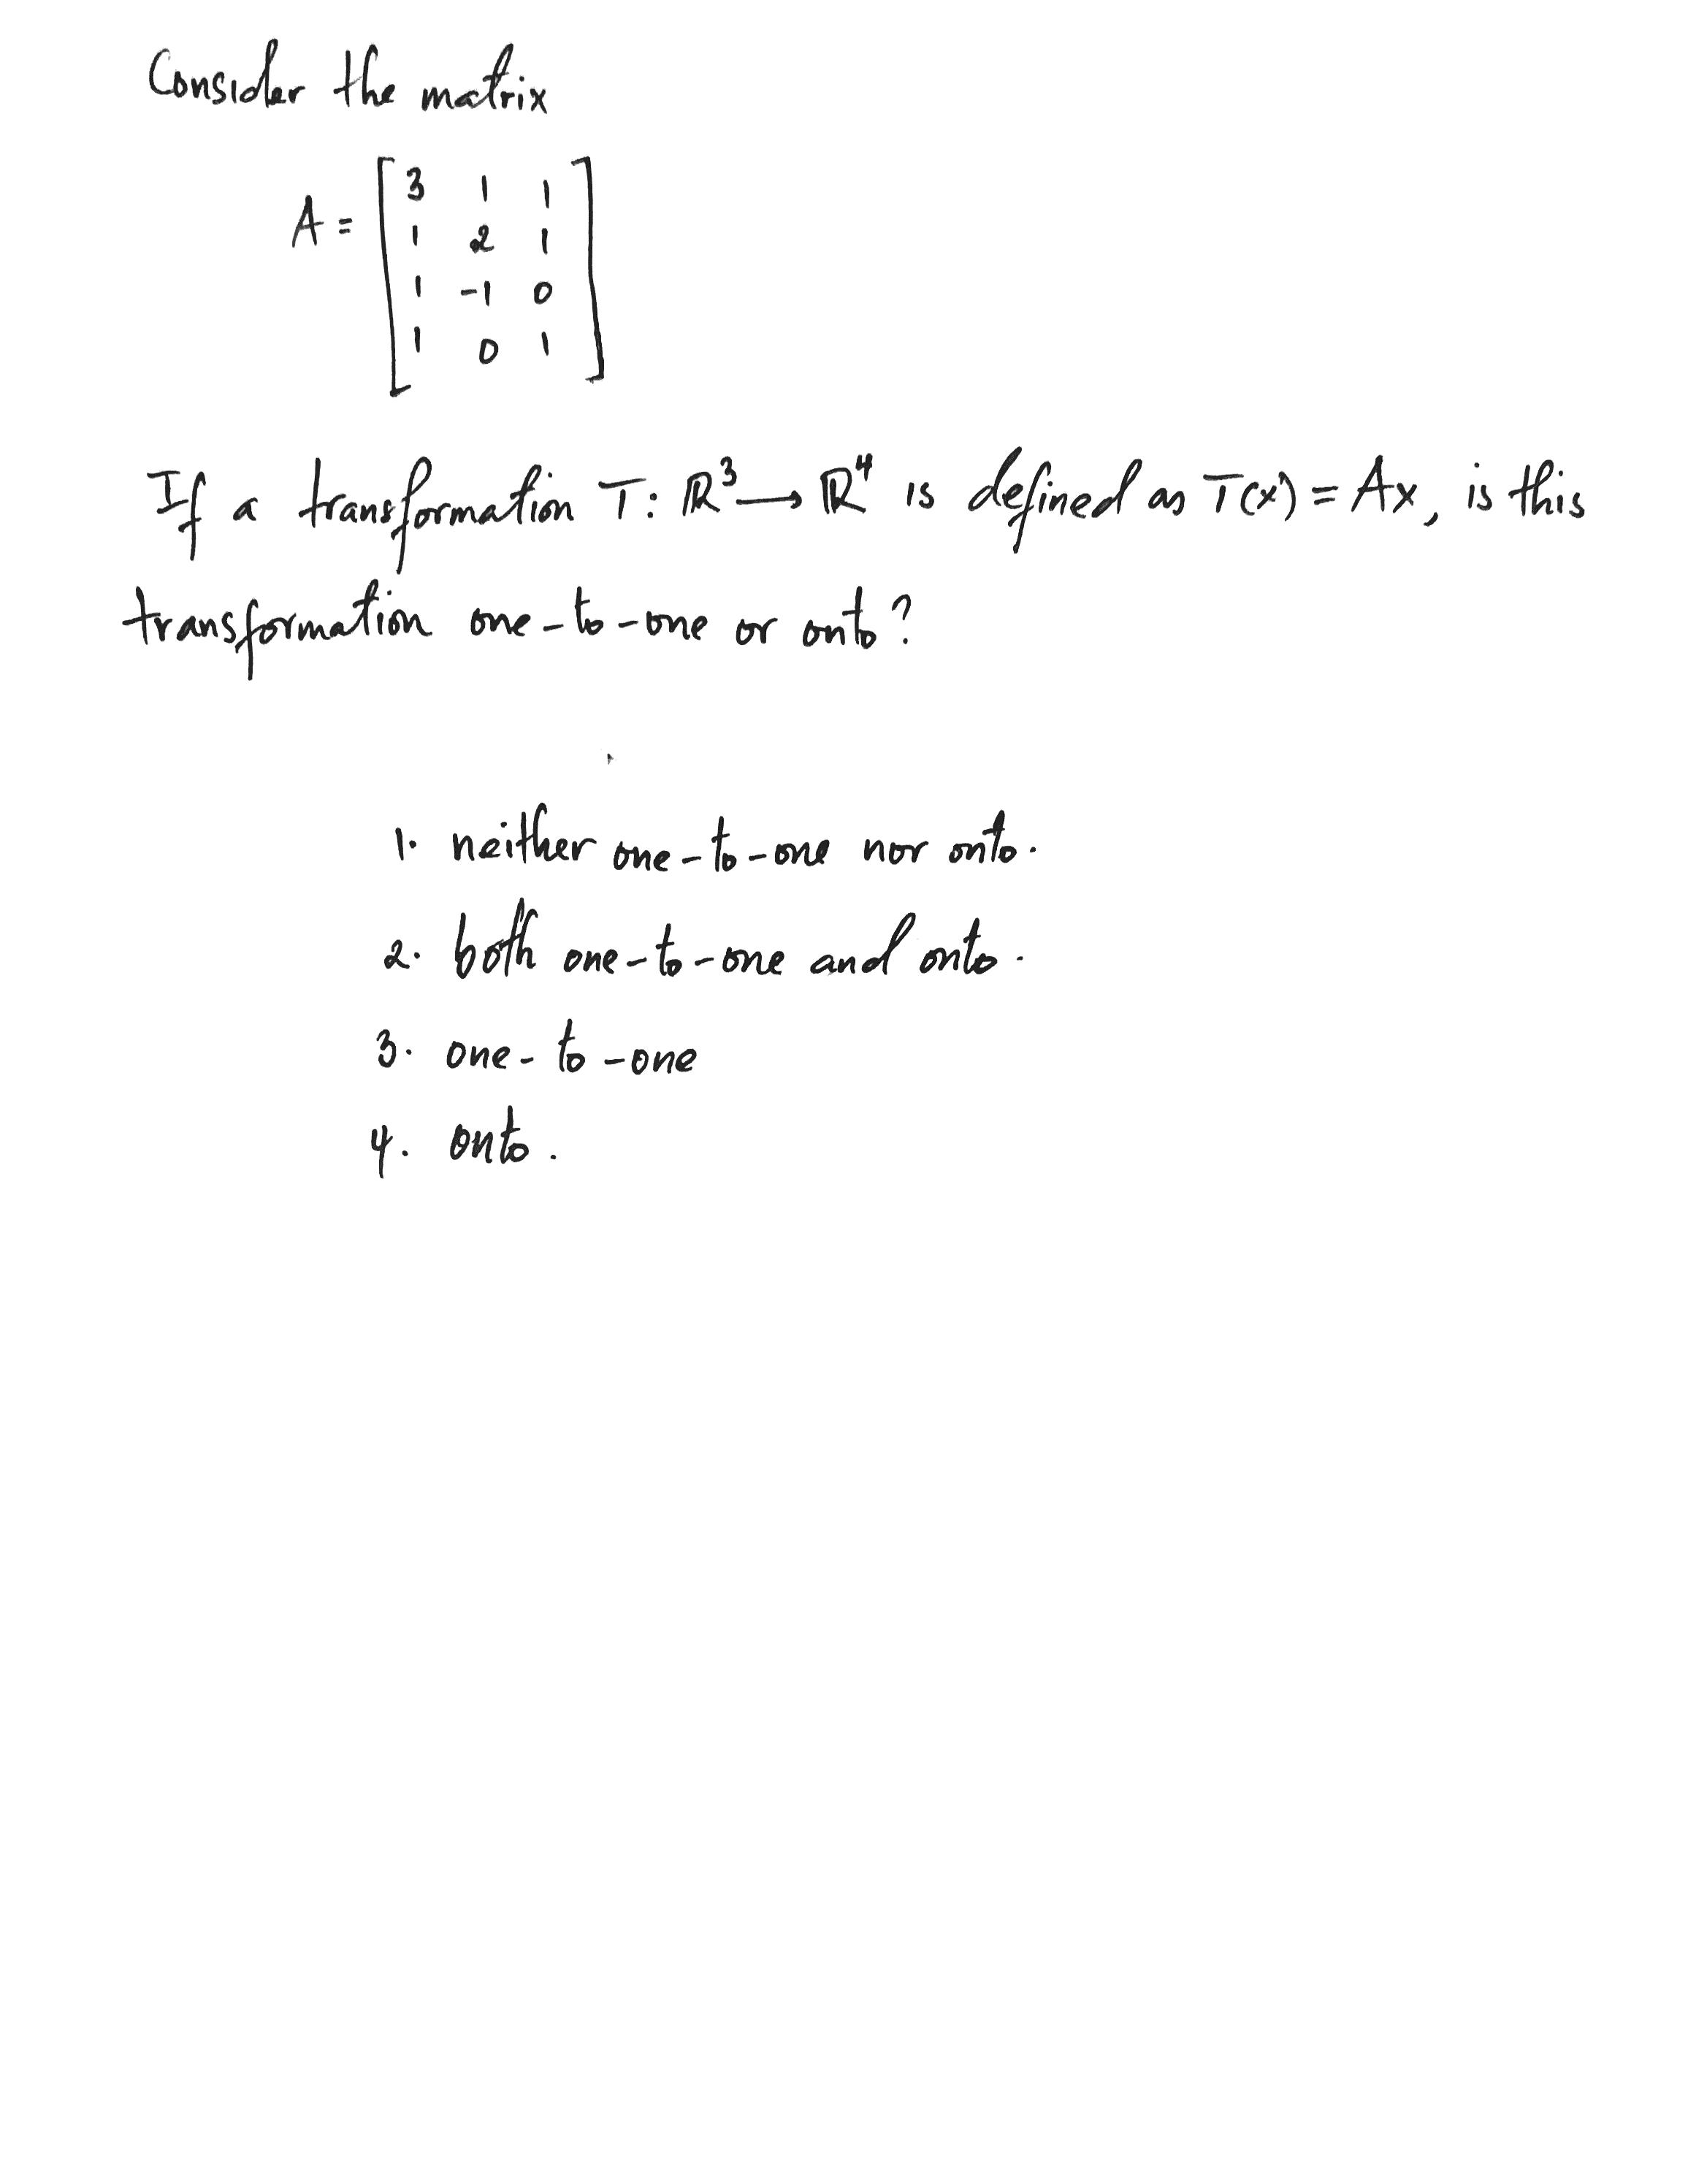 Consider the matrix
A = [ 3 1 1
1 2 1
1 -1 0
1 0 1 ]
If a transformation T: ℝ³ → ℝ⁴ is defined as T(x) = Ax, is this
transformation one-to-one or onto?
1. neither one-to-one nor onto.
2. both one-to-one and onto.
3. one-to-one
4. onto.